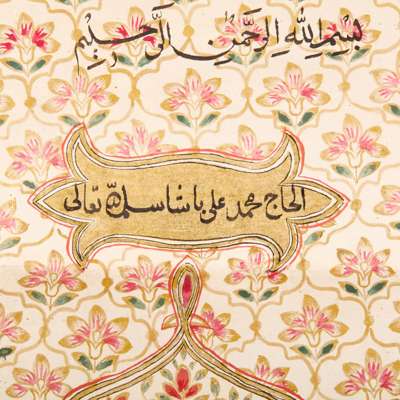 بسم الله الرحمن الرحيم
الحاج محمد علي باشا سلمه الله تعالى